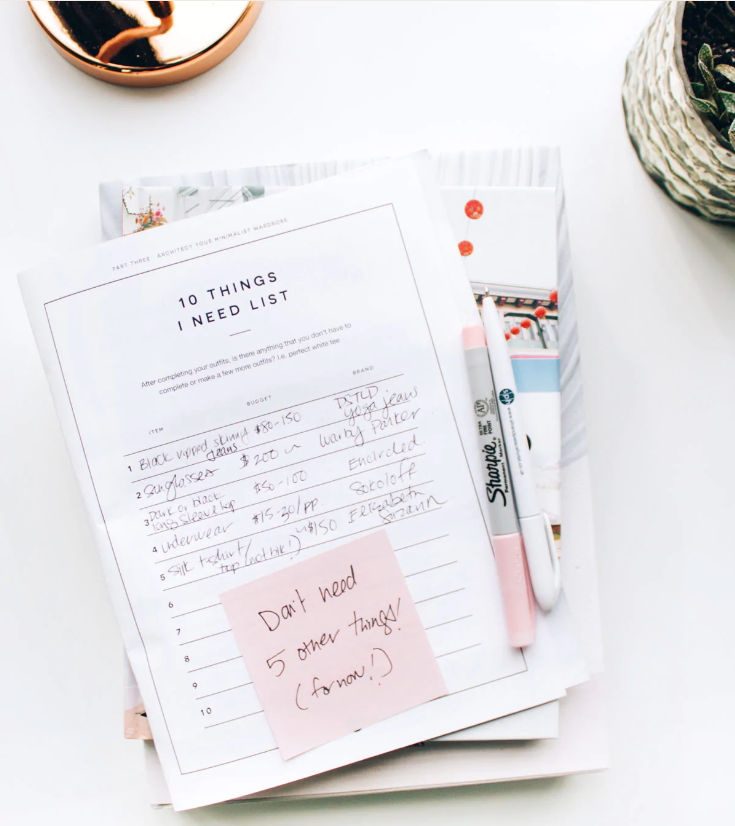 PART THREE: ARCHITECT YOUR MINIMALIST WARDROBE
10 THINGS
I NEED LIST
After completing your outfits, is there anything that you don't have to
complete or make a few more outfits? i.e. perfect white tee
ITEM BUDGET BRAND
1 Black ripped skinny jeans $80-150 DSTLD yoga jeans
2 Sunglasses $200 Warby Parker
3 Dark or black long sleeve top $50-100 Encircled
4 underwear $15-30/pp. Sokoloff
5 Silk t-shirt/ top $150 Elizabeth Suzann
6
7
8
9
10
Don't need
5 other things!
(for now!)
Sharpie